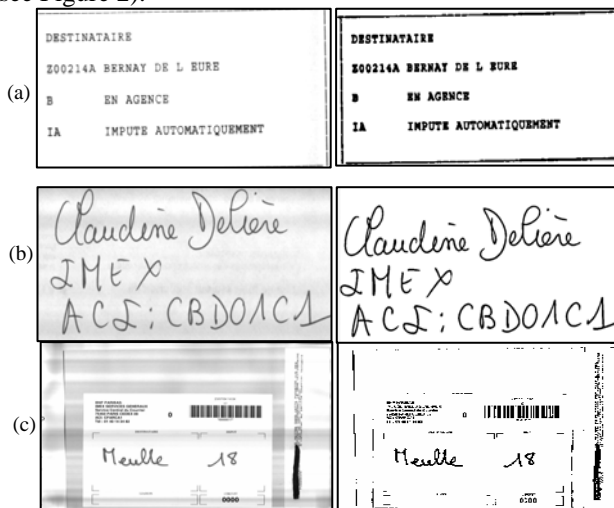 see Figure 2).
(a)
DESTINATAIRE
Z00214A BERNAY DE L EURE
B EN AGENCE
IA IMPUTE AUTOMATIQUEMENT
DESTINATAIRE
Z00214A BERNAY DE L EURE
B EN AGENCE
IA IMPUTE AUTOMATIQUEMENT
(b)
Claudine Delière
IMEX
ACI: CBD01C1
Claudine Delière
IMEX
ACI: CBD01C1
(c)
0
Meulle 18
0000
0
Meulle 18
0000